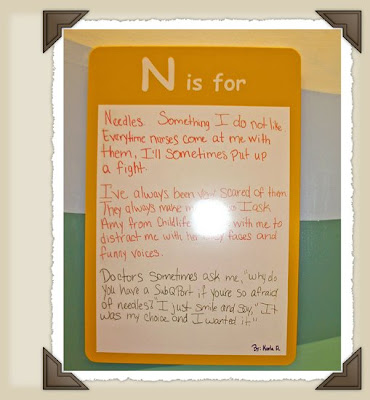 N is for
Needles. Something I do not like
Everytime nurses come at me with
them, I'll sometimes put up
a fight.
I've always been very scared of them
They always make m so I ask
Amy from Childlife with me to
distract me with her faces and
funny voices.
Doctors sometimes ask me, "why do
you have a SubQPort, if you're so afraid
of needles?" I just smile and say, "It
was my choice and I wanted it."
By: Karla A.